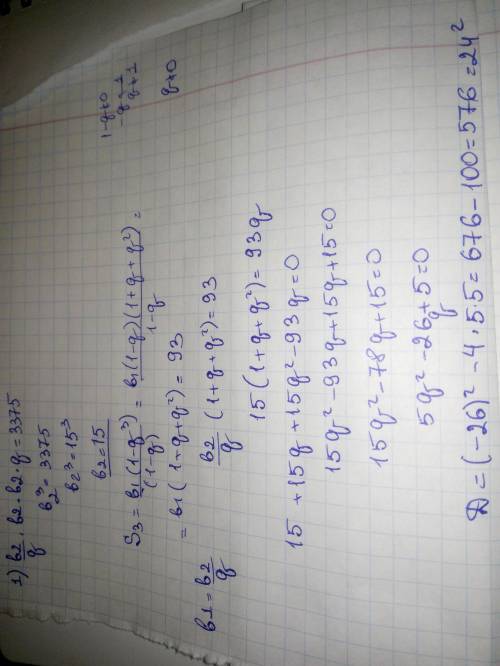 1) b2/q · b2 · b2 · q = 3375
b2³ = 3375
b2³ = 15³
b2 = 15
S3 = b1(1-q³)/(1-q) = b1(1-q)(1+q+q²)/1-q =
1-q≠0
q≠1
q≠0
= b1(1+q+q²) = 93
b1 = b2/q
b2/q (1+q+q²) = 93
15(1+q+q²) = 93q
15+15q+15q²-93q=0
15q²-93q+15q+15=0
15q²-78q+15=0
5q²-26q+5=0
D=(-26)²-4·5·5=676-100=576=24²